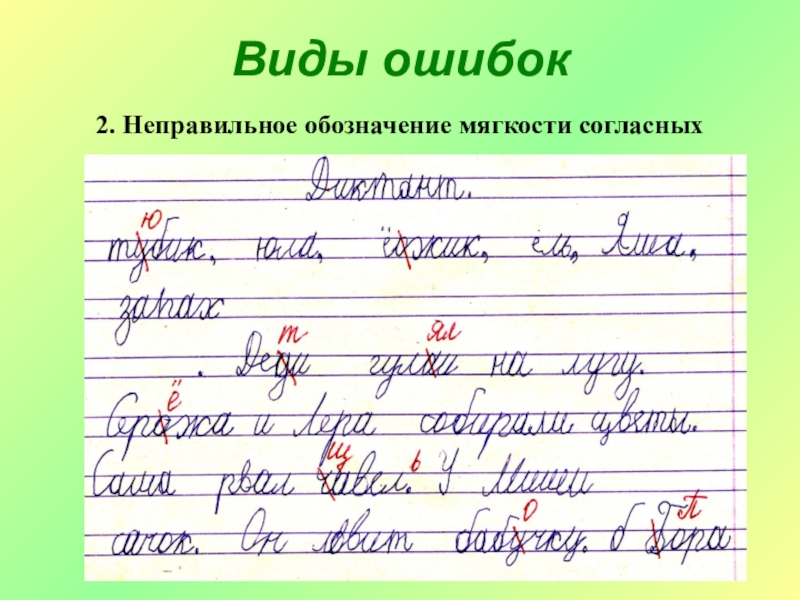 Виды ошибок
2. Неправильное обозначение мягкости согласных
Диктант.
ю
тубик, юла, ёожик, ель, Яша,
запах
т ял
. Деди гулаи на лугу.
ё
Серожа и Лера собирали цветы.
щ ь
Саша рвал чавел. У Миши
о П
сачок. Он ловит бабучку. б Бора